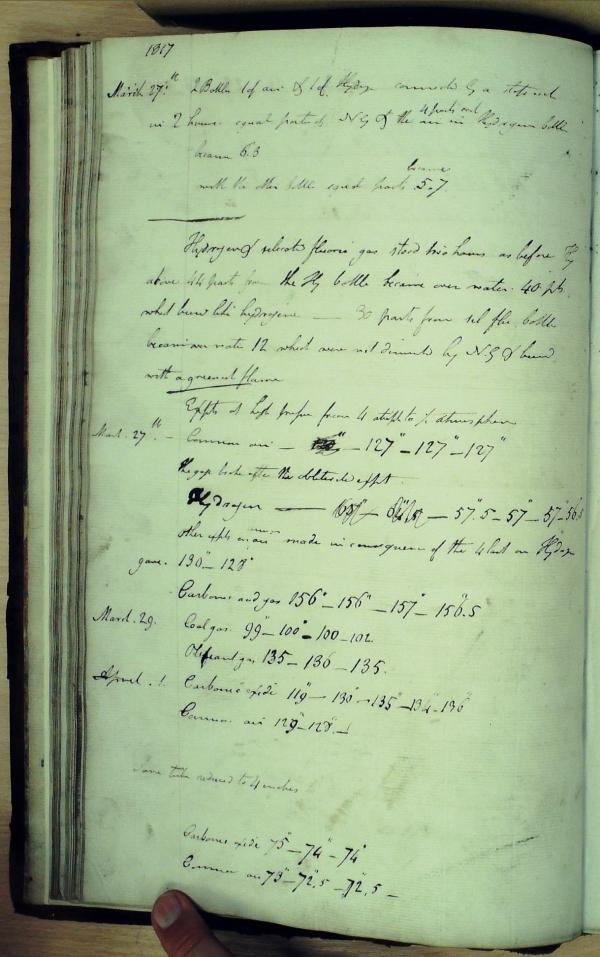 1817
March 27th. 2 Bottles 1 of air & 1 of Hydrogn connected by a
in 2 hours equal parts of N G & the air in Hydrogen bottle
4 parts and
became 6.3
became
with the other bottle equal parts 5.7
Hydrogen & silicated fluoric gas stood two hours as before Hy
above 44 parts from the Hy bottle became over water 40 pts
which burnt like hydrogene — 30 parts from sil flu. bottle
became over water 12 which were not dimind by N. G & burnd
with a greenish flame
Expts at high press from 4 to atmosphere
March. 27th. — Common air — 127" — 127" — 127"
The gage broke after the obliterated expt.
Hydrogen — 57".5 — 57" — 57" — 56.5
other expts on air made in consequence of the 4 last on Hydrogen
gave. 130" — 128"
Carbonic acid gas 156" — 156" — 157" — 156.5
March. 29. Coal gas. 99" — 100" — 100 — 102.
Olefiant gas 135 — 136 — 135.
April. 1. Carbonic oxide 119" — 130" — 135" — 134 — 136"
Common air 129" — 128". —
Same tube reduced to 4 inches
Carbonic oxide 75" — 74" — 74"
Common air 73" — 72".5 — 72".5 —